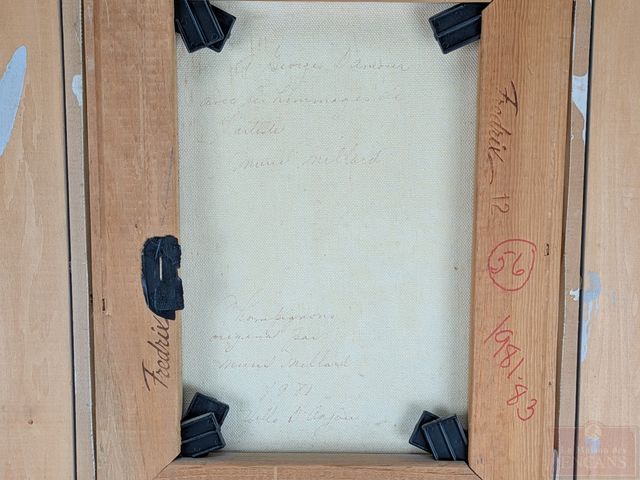 Georges D'amour
avec les hommages de
l'artiste
Muriel Millard
original par
Muriel Millard
1981
Fredrix
Fredrix 12
25
1981-83